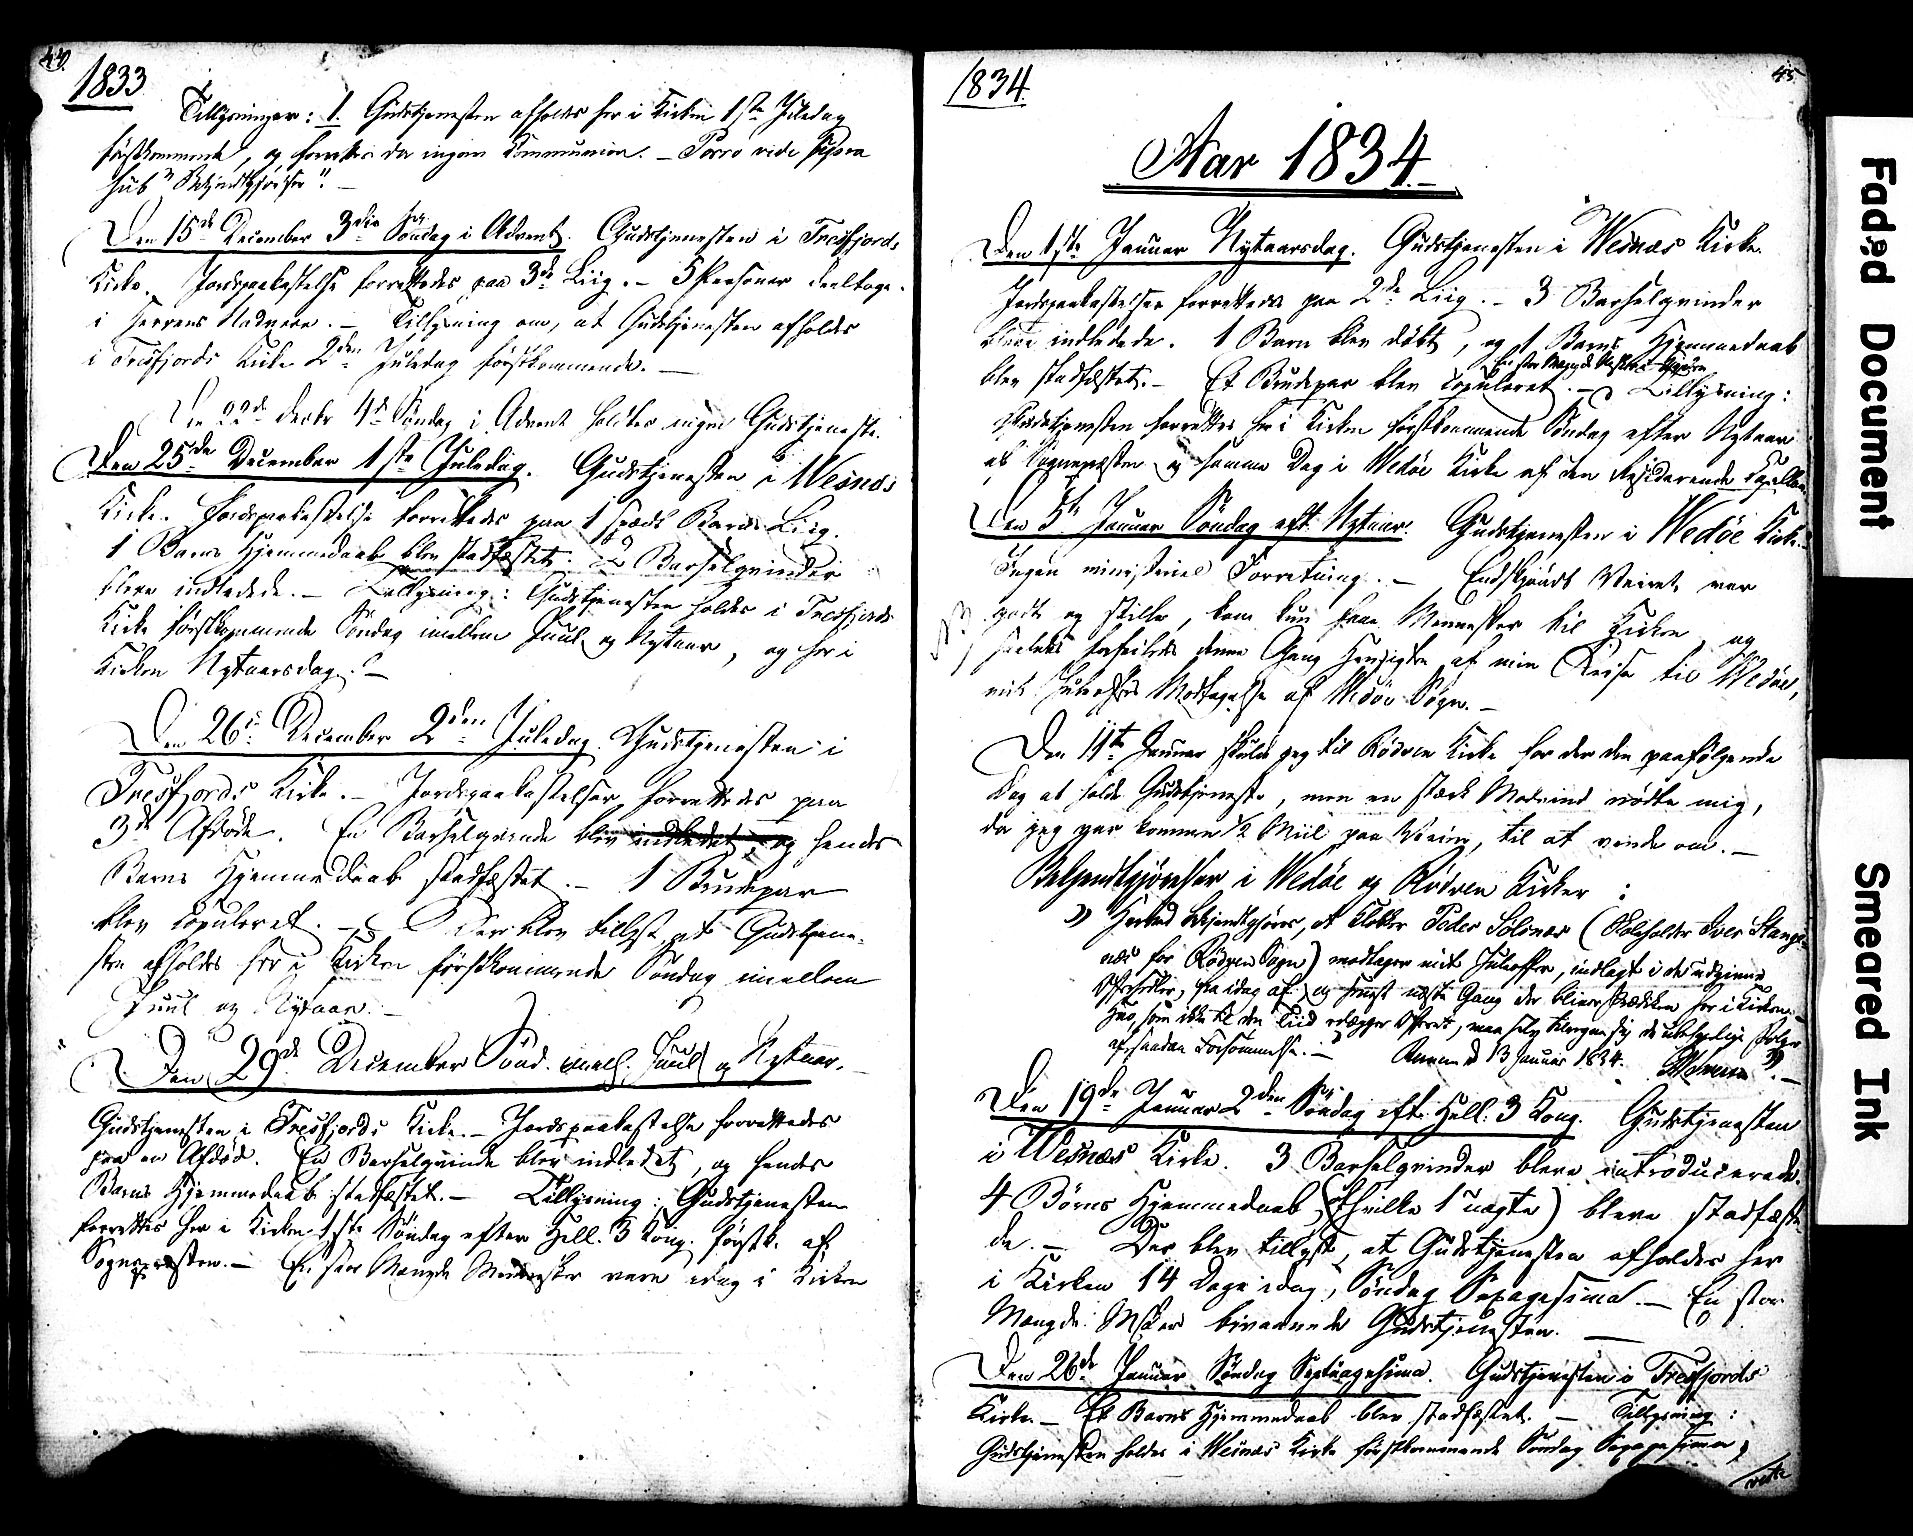 44.
1833
Tillysninger: 1. Gudstjenesten afholdes her i Kirken 1ste Juledag
førstkommende, og forrettes da ingen Communion. – Porro vide supra
sub "Bekjendtgjörelser". –
Den 15de December 3die Söndag i Advent. Gudstjenesten i Tresfjords
Kirke. Jordspaakastelse forrettedes paa 3de Liig. – 5 Personer deeltoge
i Herrens Nadvere. – Tillysning om, at Gudstjenesten afholdes
i Tresfjords Kirke 2den Juledag førstkommende. –
Den 22de Decbr 4de Söndag i Advent holdtes ingen Gudstjeneste.
Den 25de December 1ste Juledag. Gudstjenesten i Wesnæs
Kirke. Jordspaakastelse forrettedes paa 1 spædt Barns Liig.
1 Barns Hjemmedaab blev stadfæstet. 2 Barselqvinder
bleve indledede. – Tillysning: Gudstjenesten holdes i Tresfjords
Kirke förstkommende Söndag imellem Juul og Nytaar, og her i
Kirken Nytaarsdag. –
Den 26de December 2den Juledag. Gudstjenesten i
Tresfjords Kirke. – Jordspaakastelser forrettedes paa
3de Afdøde. En Barselqvinde blev indledet, og hendes
Barns Hjemmedaab stadfæstet. – 1 Brudepar
blev copuleret. – Der blev tillyst at Gudstjene-
sten afholdes her i Kirken förstkommende Söndag imellem
Juul og Nytaar. –
Den 29de December Sönd. mell. Juul og Nytaar.
Gudstjenesten i Tresfjords Kirke. – Jordspaakastelse forrettedes
paa en Afdød. En Barselqvinde blev indledet, og hendes
Barns Hjemmedaab stadfæstet. – Tillysning: Gudstjenesten
forrettes her i Kirken 1ste Söndag efter Hell. 3 Kong. förstk. af
Sognepresten. – En stor Mængde Mennesker vare idag i Kirken
1834.
45
Aar 1834.
Den 1ste Januar Nytaarsdag. Gudstjenesten i Wesnæs Kirke.
Jordspaakastelser forrettedes paa 2de Liig. – 3 Barselqvinder
bleve indledede. 1 Barn blev döbt, og 1 Barns Hjemmedaab
blev stadfæstet. – Et Brudepar blev copuleret. – Tillysning:
Gudstjenesten forrettes her i Kirken förstkommende Söndag efter Nytaar
af Sognepresten og samme Dag i Wedöe Kirke af den Residerende Capellan
Den 5te Januar Söndag eft. Nytaar. Gudstjenesten i Wedöe Kirke.
Ingen ministeriel Forretning. – Endskjöndt Veiret var
godt og stille, kom kun faae Mennesker til Kirken, og
saaledes forfeiledes denne Gang Hensigten af min Reise til Wedöe,
mit Juleoffers Modtagelse af Wedöe Sogn. –
Den 11te Januar skulde jeg til Rödven Kirke for der den paafölgende
Dag at holde Gudstjeneste, men en stærk Modvind nödte mig,
da jeg var kommen 1/2 Miil paa Veien, til at vende om. –
Bekjendtgjörelser i Wedöe og Rödven Kirker:
" Herved bekjendtgjöres, at Klokker Peder Solsnæs (Iver Stange-
næs for Rödven Sogn) modtager mit Juleoffer, indlagt i de udgivne
Offersedler, fra idag af og seenest næste Gang der bliver Præken her i Kirken.
Hvo, som ikke til den Tiid erlægger Offeret, maa selv tilregne sig de ubehagelige Fölger
af saadan Forsömmelse. – d 13 Januar 1834.
Den 19de Januar 2den Söndag eft. Hell. 3 Kong. Gudstjenesten
i Wesnæs Kirke. 3 Barselqvinder bleve introducerede.
4 Börns Hjemmedaab (hvilke 1 uægte) bleve stadfæste-
de. – Der blev tillyst, at Gudstjenesten afholdes her
i Kirken 14 Dage idag, Söndag Sexagesima. – En stor
Mængde Msker bivaanede Gudstjenesten. –
Den 26de Januar Söndag Septuagesima. Gudstjenesten i Tresfjords
Kirke. – Et Barns Hjemmedaab blev stadfæstet. – Tillysning:
Gudstjenesten holdes i Wesnæs Kirke förstkommende Söndag Sexagesima,
Faded Document
Smeared Ink